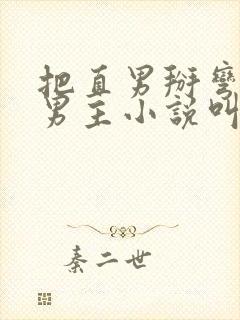 把直男掰弯
男主小说叫
秦二世